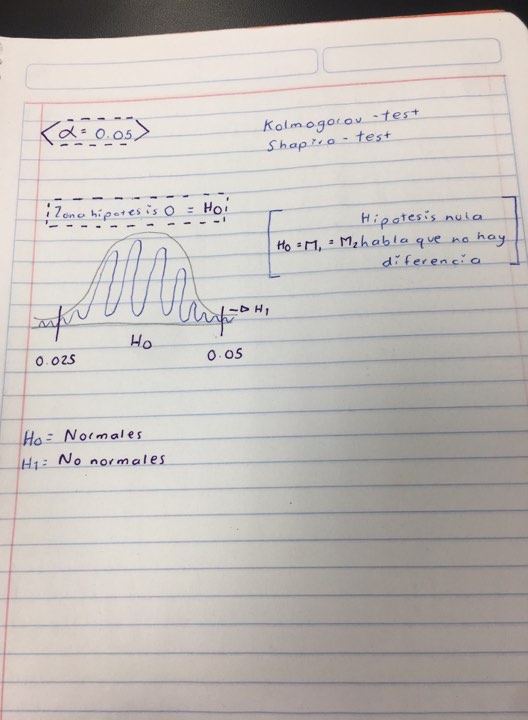 α = 0.05
Kolmogorov - test
Shapiro - test
Zona hipotesis 0 = H0
Hipotesis nula
H0 = M1 = M2 habla que no hay
diferencia
→ H1
H0
0.025
0.05
H0 = Normales
H1 = No normales